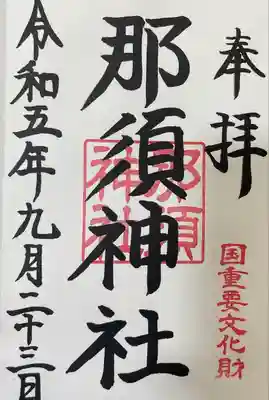 奉拝
国重要文化財
那須神社
那須神社
令和五年九月二十三日